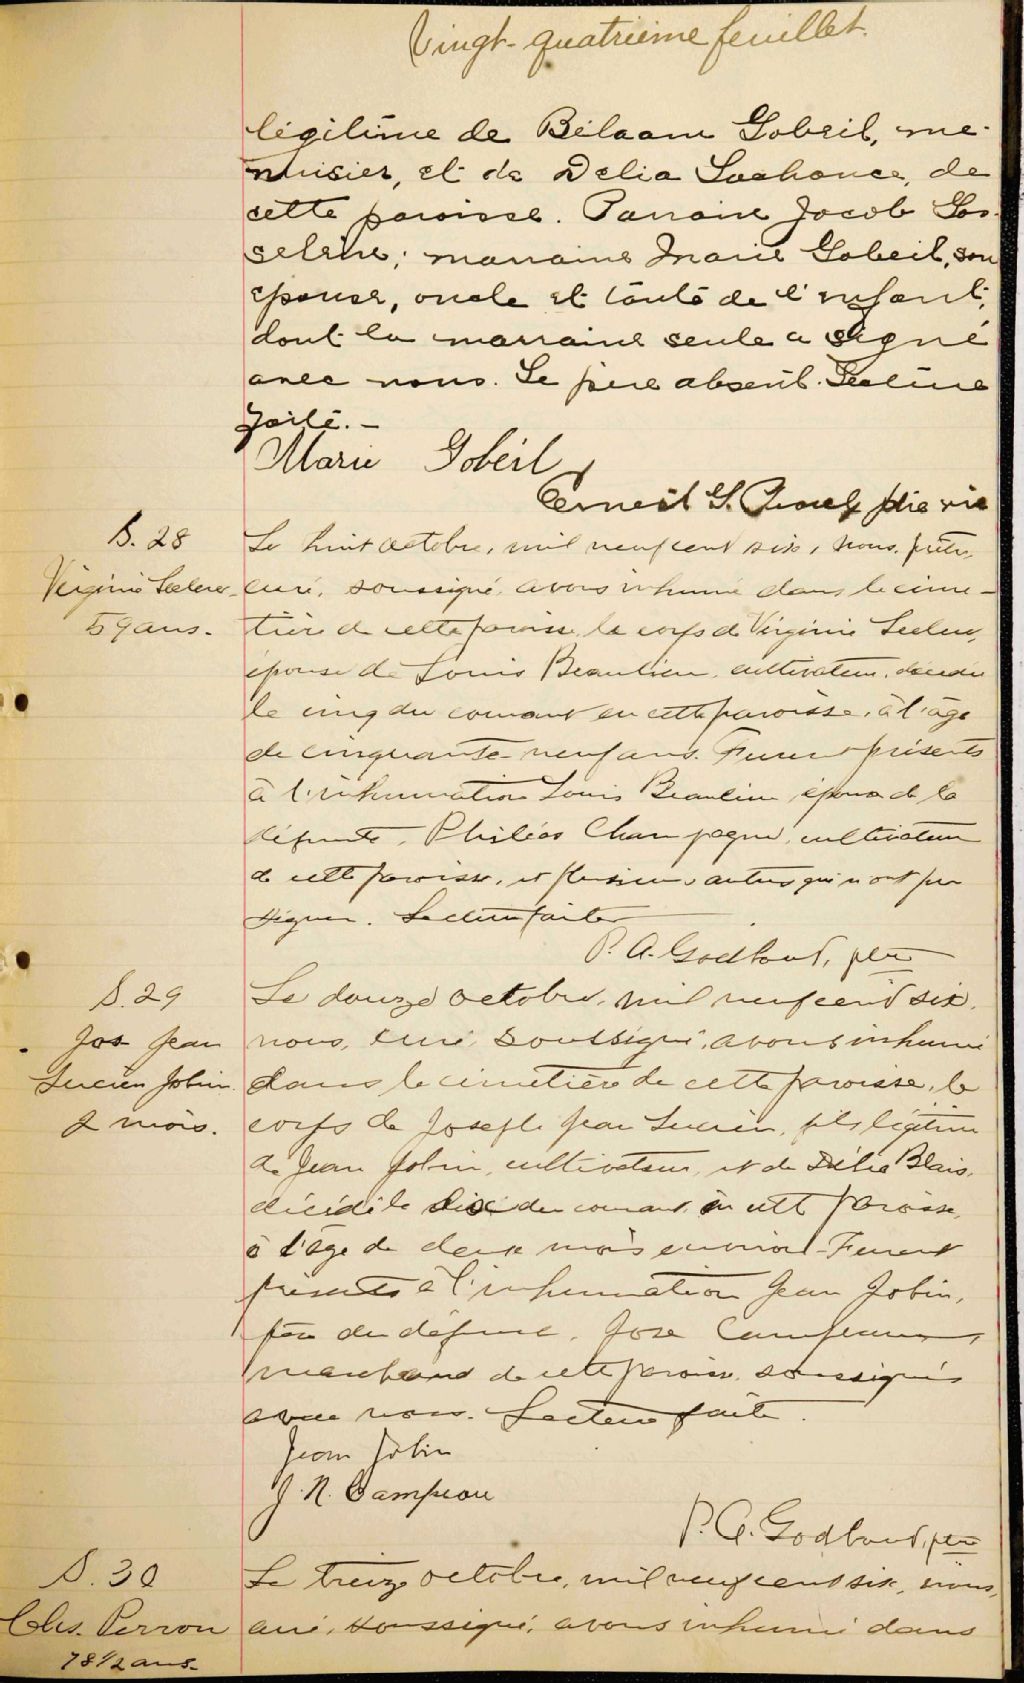 Vingt-quatrième feuillet.
légitime de Bélaam Gobeil, me-
nuisier, et de Delia Lachance, de
cette paroisse. Parrain Jacob Gos-
selin; marraine Marie Gobeil, son
épouse, oncle et tante de l'enfant,
dont la marraine seule a signé
avec nous. Le père absent. Lecture
faite. —
Marie Gobeil
Ernest G. ptre vic
S. 28
Virginie Leclerc
59 ans.
Le huit octobre, mil neuf cent six, nous, prêtre,
curé, soussigné, avons inhumé dans le cime-
tière de cette paroisse, le corps de Virginie Leclerc,
épouse de Louis Beaulieu, cultivateur, décédée
le cinq du courant en cette paroisse, à l'âge
de cinquante-neuf ans. Furent présents
à l'inhumation Louis Beaulieu époux de la
défunte, Philéas Champagne, cultivateur
de cette paroisse, et plusieurs autres qui n'ont pu
signer. Lecture faite
P. A. Godbout, ptre
S. 29
Jos Jean
Lucien Jobin
2 mois.
Le douze octobre, mil neuf cent six,
nous, curé, soussigné, avons inhumé
dans le cimetière de cette paroisse, le
corps de Joseph Jean Lucien, fils légitime
de Jean Jobin, cultivateur, et de Délia Blais,
décédé le dix du courant, en cette paroisse,
à l'âge de deux mois environ. Furent
présents à l'inhumation Jean Jobin,
père du défunt, Jos Campeau,
marchand de cette paroisse, soussignés
avec nous. Lecture faite.
Jean Jobin
J. N. Campeau
P. A. Godbout, ptre
S. 30
Chs. Perron
78 1/2 ans.
Le treize octobre, mil neuf cent six, nous,
curé, soussigné, avons inhumé dans